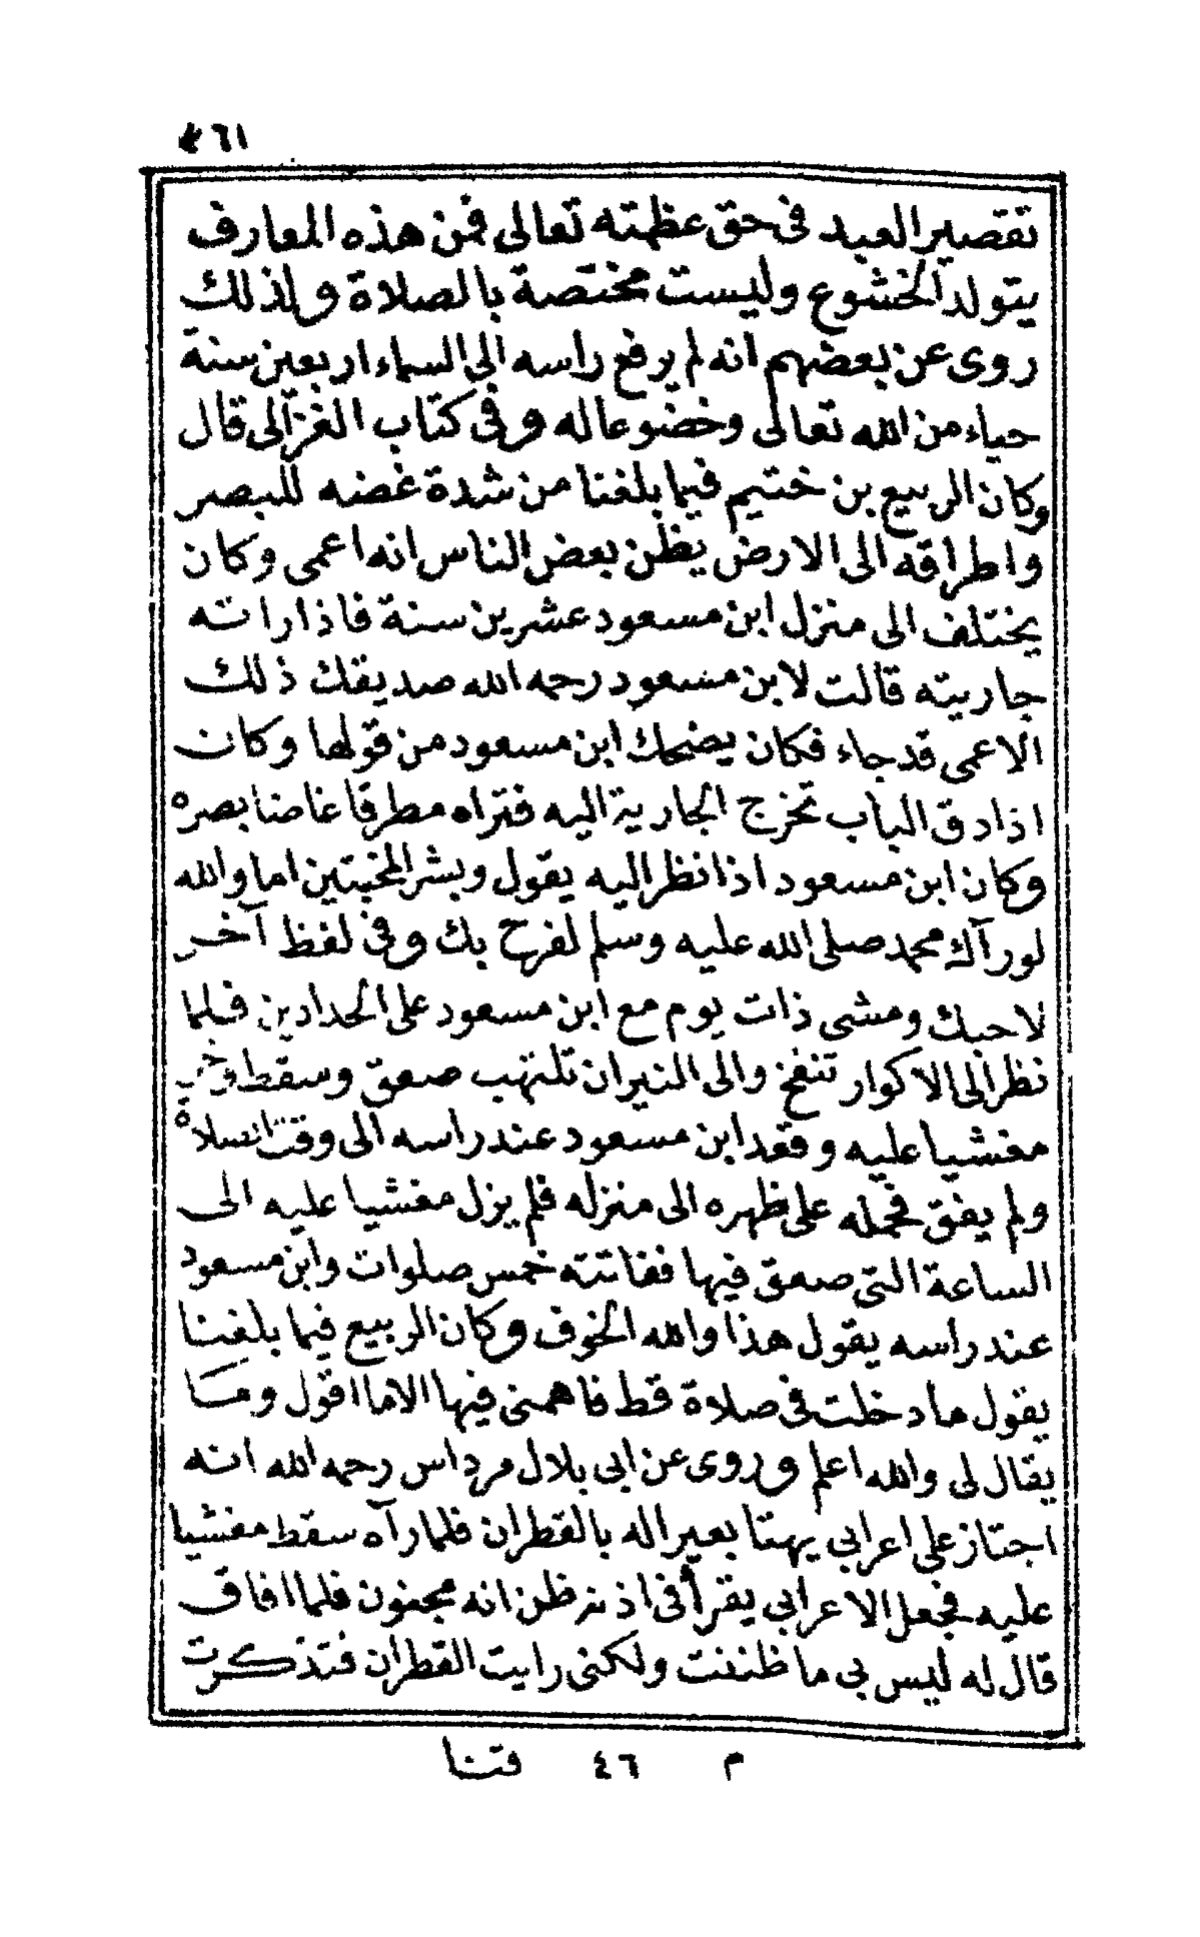 ٣٦١
تقصير العبد في حق عظمته تعالى فمن هذه المعارف
يتولد الخشوع وليست مختصة بالصلاة ولذلك
روى عن بعضهم انه لم يرفع راسه الى السماء اربعين سنة
حياء من الله تعالى وخضوعا له وفي كتاب الغزالى قال
وكان الربيع بن ختيم فيما بلغنا من شدة غضه للبصر
واطراقه الى الارض يظن بعض الناس انه اعمى وكان
يختلف الى منزل ابن مسعود عشرين سنة فاذا راته
جاريته قالت لابن مسعود رحمه الله صديقك ذلك
الاعمى قد جاء فكان يضحك ابن مسعود من قولها وكان
اذا دق الباب تخرج الجارية اليه فتراه مطرقا غاضا بصره
وكان ابن مسعود اذا نظر اليه يقول وبشر المخبتين اما والله
لو رآك محمد صلى الله عليه وسلم لفرح بك وفي لفظ آخر
لاحبك ومشى ذات يوم مع ابن مسعود على الحدادين فلما
نظر الى الاكوار تنفخ والى النيران تلتهب صعق وسقط وخر
مغشيا عليه وقعد ابن مسعود عند راسه الى وقت الصلاة
ولم يفق فحمله على ظهره الى منزله فلم يزل مغشيا عليه الى
الساعة التى صعق فيها ففاتته خمس صلوات وابن مسعود
عند راسه يقول هذا والله الخوف وكان الربيع فيما بلغنا
يقول ما دخلت في صلاة قط فاهمنى فيها الا ما اقول وما
يقال لى والله اعلم وروى عن ابى بلال مرداس رحمه الله انه
اجتاز على اعرابي يهنا بعيرا له بالقطران فلما رآه سقط مغشيا
عليه فجعل الاعرابي يقرأ في اذنه ظن انه مجنون فلما افاق
قال له ليس بي ما ظننت ولكنى رايت القطران فتذكرت
م ٤٦ قتنا